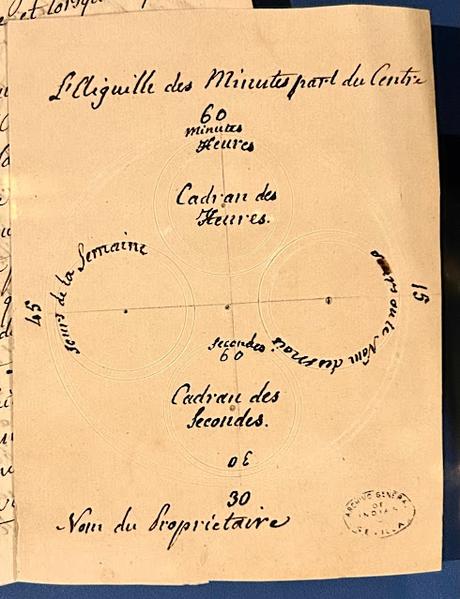 L'Aiguille des Minutes part du Centre
60
Minutes
Heures
Cadran des
Heures.
Jours de la Semaine
45
15
ou le Nom des mois
Secondes
60
Cadran des
Secondes.
30
30
Nom du Propriétaire
ARCHIVO GENERAL
DE
INDIAS
SEVILLA